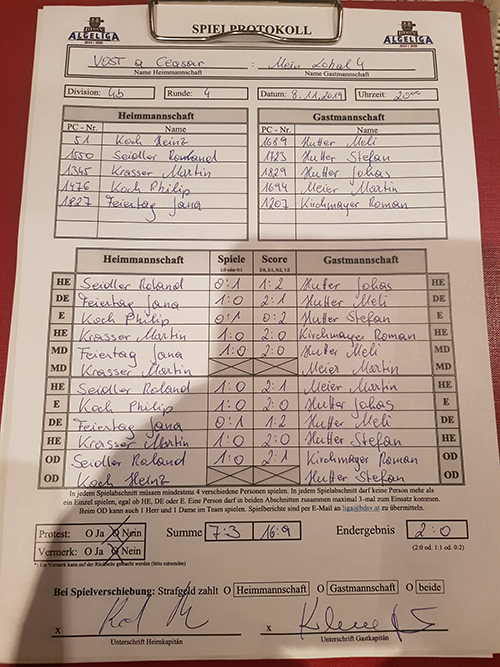 ALGELIGA SPIELPROTOKOLL ALGELIGA
VOST a Ceasar : Mein Lokal 4
Name Heimmannschaft Name Gastmannschaft
Division: 4b Runde: 4 Datum: 8.11.2019 Uhrzeit: 20:00
Heimmannschaft Gastmannschaft
PC - Nr. Name PC - Nr. Name
51 Koch Heinz 1689 Hutter Meli
1550 Seidler Roland 1723 Hutter Stefan
1345 Krasser Martin 1829 Hutter Johas
1476 Koch Philip 1694 Meier Martin
1827 Feiertag Jana 1207 Kirchmayer Roman
Heimmannschaft Spiele Score Gastmannschaft
1:0 oder 0:1 2:0, 2:1, 0:2, 1:2
HE Seidler Roland 0:1 1:2 Hutter Johas HE
DE Feiertag Jana 1:0 2:1 Hutter Meli DE
E Koch Philip 0:1 0:2 Hutter Stefan E
HE Krasser Martin 1:0 2:0 Kirchmayer Roman HE
MD Feiertag Jana 1:0 2:0 Hutter Meli MD
MD Krasser Martin Meier Martin MD
HE Seidler Roland 1:0 2:1 Meier Martin HE
E Koch Philip 1:0 2:0 Hutter Johas E
DE Feiertag Jana 0:1 1:2 Hutter Meli DE
HE Krasser Martin 1:0 2:0 Hutter Stefan HE
OD Seidler Roland 1:0 2:1 Kirchmayer Roman OD
OD Koch Heinz Hutter Stefan OD
In jedem Spielabschnitt müssen mindestens 4 verschiedene Personen spielen. In jedem Spielabschnitt darf keine Person mehr als
ein Einzel spielen, egal ob HE, DE oder E. Eine Person darf in beiden Abschnitten zusammen maximal 3-mal zum Einsatz kommen.
Beim OD kann auch 1 Herr und 1 Dame im Team spielen. Spielberichte sind per E-Mail an liga@bdsv.at zu übermitteln.
Protest: O Ja O Nein Summe 7:3 16:9 Endergebnis 2:0
Vermerk: O Ja O Nein (2:0 od. 1:1 od. 0:2)
*) Ein Vermerk kann auf der Rückseite gemacht werden (bitte mitsenden)
Bei Spielverschiebung: Strafgeld zahlt O Heimmannschaft O Gastmannschaft O beide
x x
Unterschrift Heimkapitän Unterschrift Gastkapitän